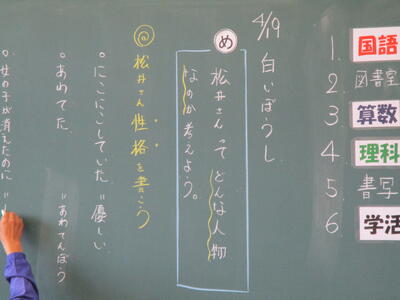 1. 国語
2 図書室
3 算数
4 理科
5 書写
6 学活
4/19 白いぼうし
め
松井さんって どんな人物
なのか 考えよう。
◎松井さん 性格を書こう
。にこにこしていた。=優しい
。あわてた =あわてんぼう
。女の子が消えたのに =